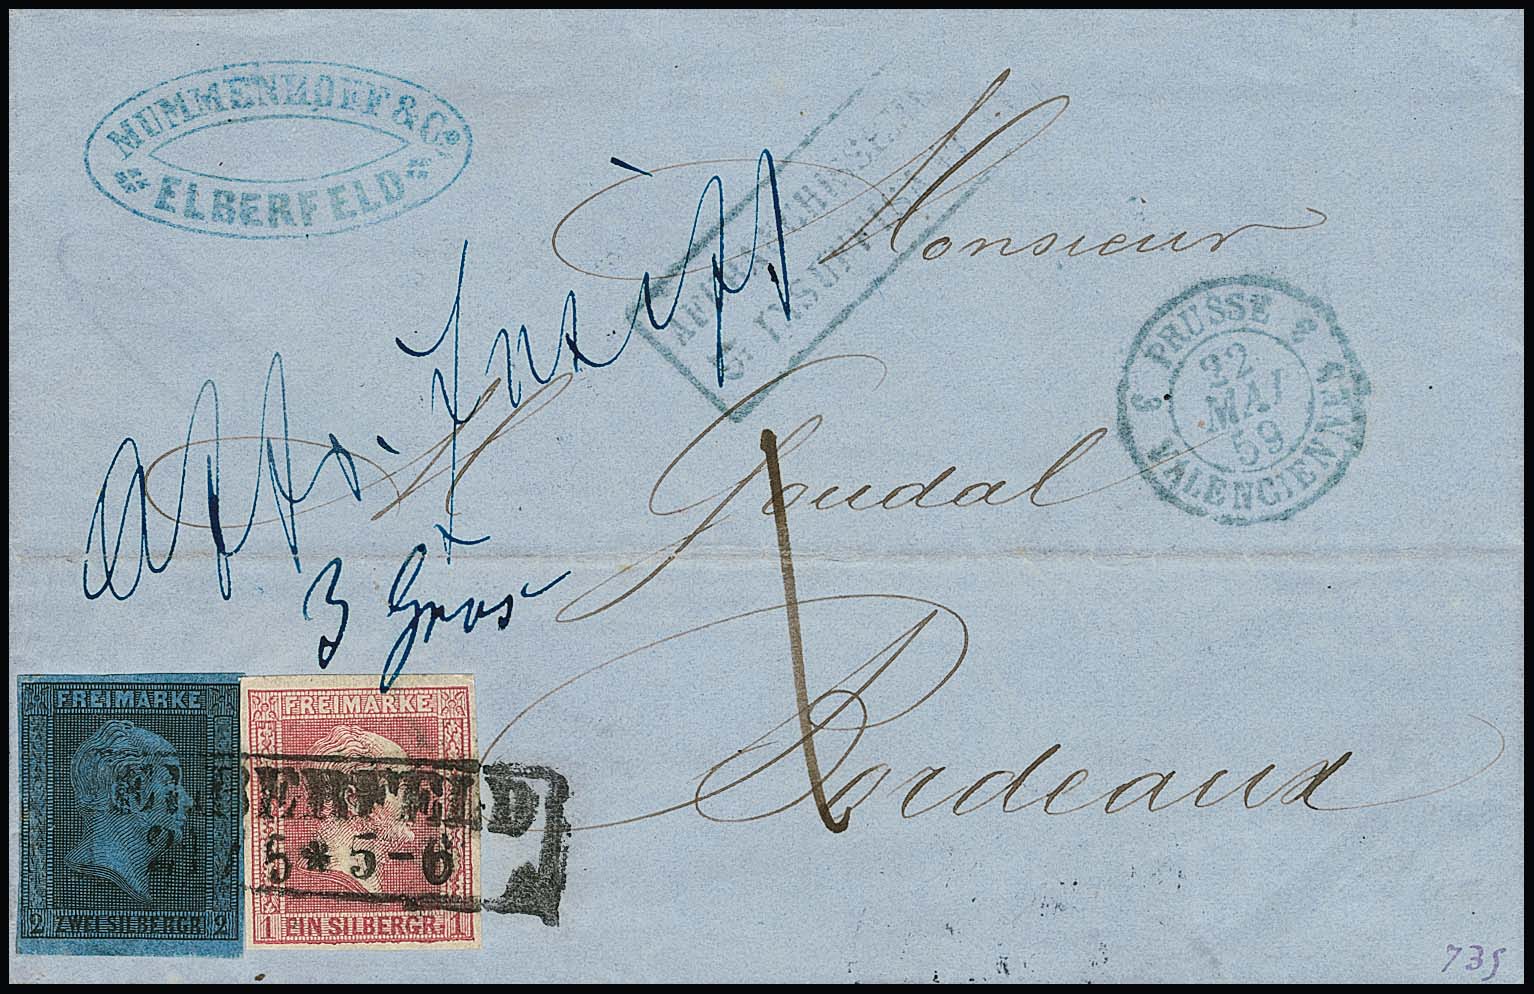 MUMMENHOFF & Co.
* ELBERFELD *
AFFRANCHISSEMENT
INSUFFISANT
Monsieur
3 PRUSSE 3
22
MAI
59
VALENCIENNES
M Goudal
3 Gros
Bordeaux
FREIMARKE
2 ZWEI SILBERGR. 2
FREIMARKE
1 EIN SILBERGR. 1
ELBERFELD
5 * 5-6
735